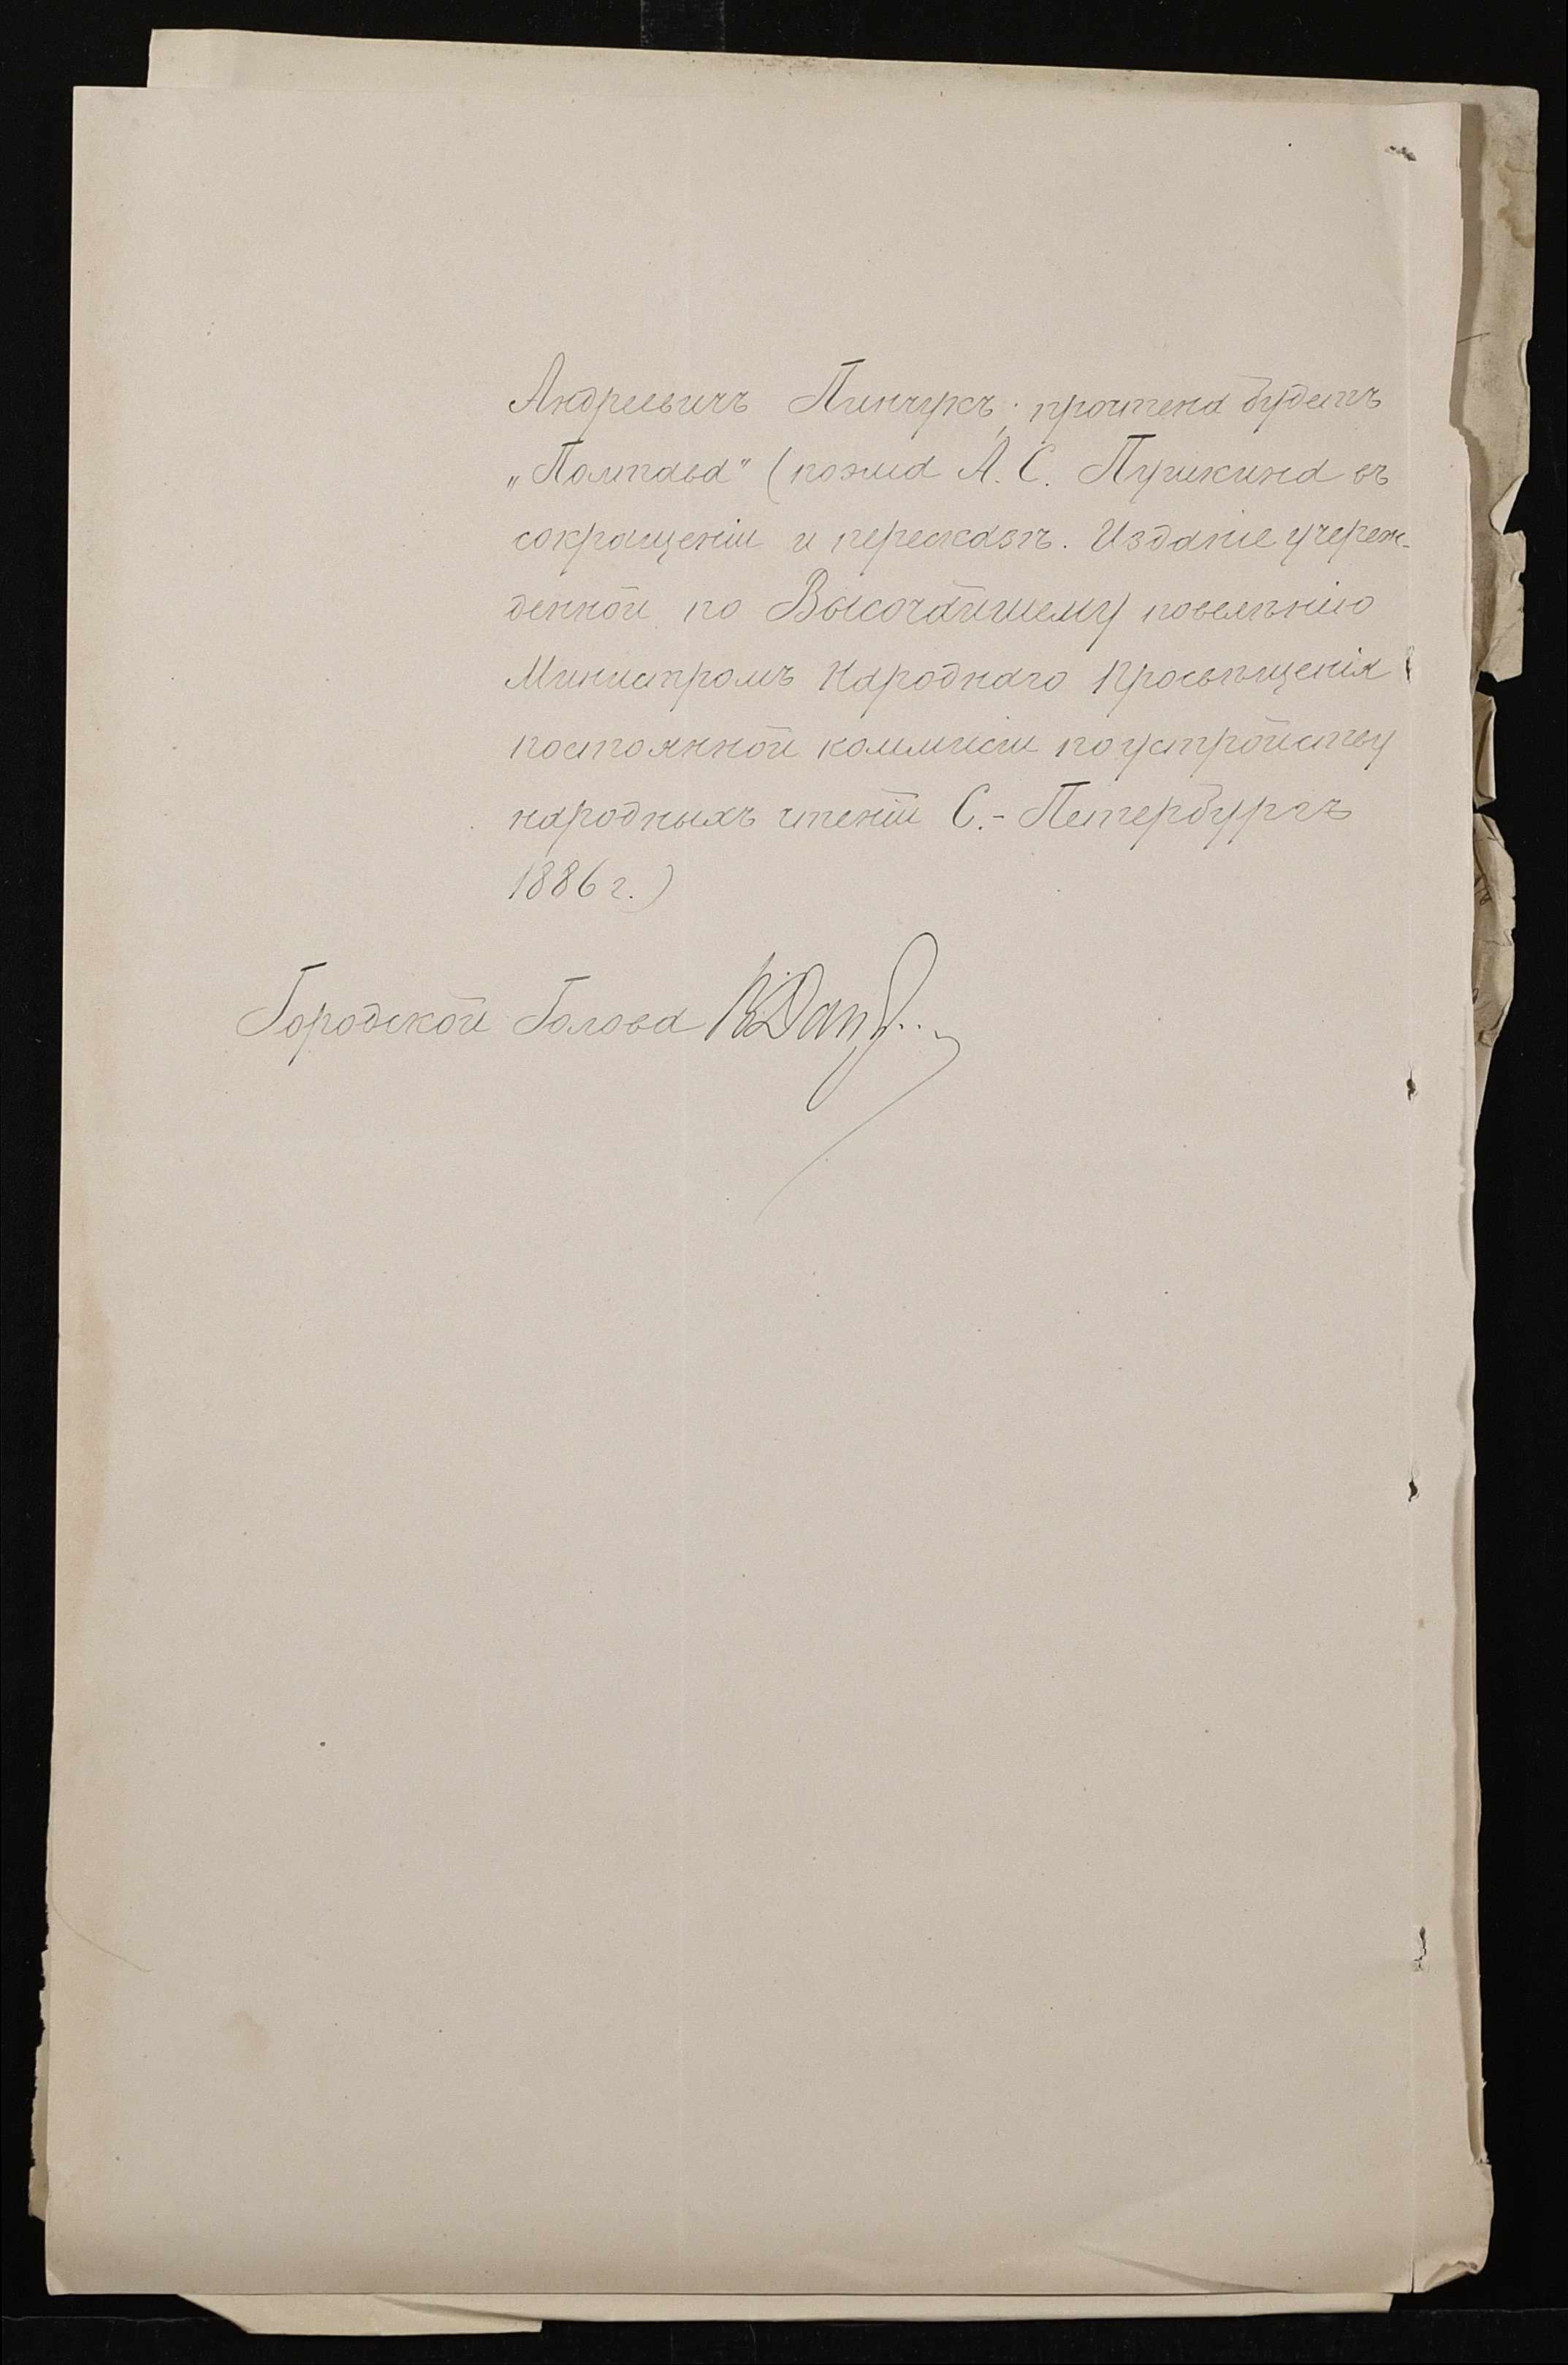 Андреевичъ Пинчукъ; прочтена будетъ
„Полтава" (поэма А. С. Пушкина въ
сокращеніи и пересказѣ. Изданіе учереж-
денной по Высочайшему повелѣнію
Министромъ Народнаго Просвѣщенія
постоянной коммисіи по устройству
народныхъ чтеній С.-Петербургъ
1886 г.)
Городской Голова